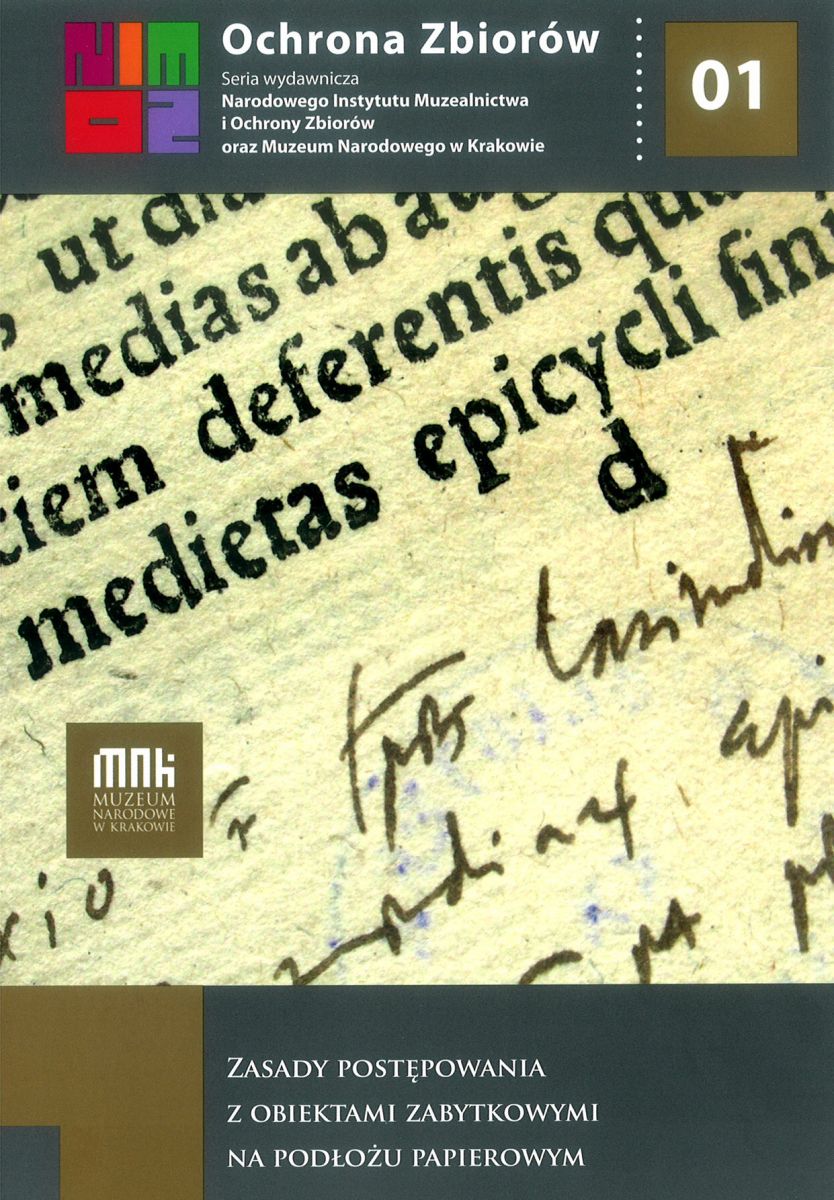 NIMOZ
Ochrona Zbiorów
Seria wydawnicza
Narodowego Instytutu Muzealnictwa
i Ochrony Zbiorów
oraz Muzeum Narodowego w Krakowie
01
ut dia
medias ab aug
ciem deferentis qua
medietas epicycli sint
d
xio
mnk
MUZEUM
NARODOWE
W KRAKOWIE
Zasady postępowania
z obiektami zabytkowymi
na podłożu papierowym